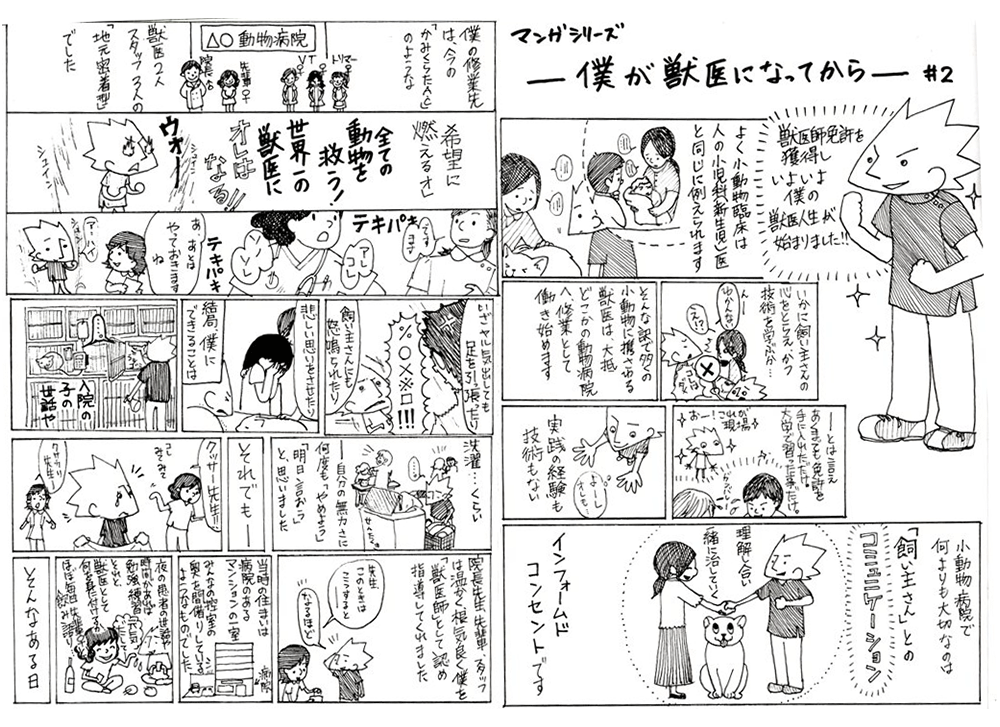 マンガシリーズ
― 僕が獣医になってから ― #2
獣医師免許を
獲得し
いよいよ
僕の
獣医人生が
始まりました!!
よく小動物臨床は
人の小児科(新生児)医
と同じに例えられます
いかに飼い主さんの
心をとらえ、かつ
技術を学ぶか…
んー
わかんない
え!?
そんな訳で多くの
小動物に携わる
獣医は、大抵
どこかの動物病院
へ、修業として
働き始めます
―とは言え
あくまでも免許を
手に入れただけ。
大学で習った事だけ。
おー!これが
現場
よーし
オレも…
実践の経験も
技術もない
小動物病院で
何よりも大切なのは
「飼い主さん」との
コミュニケーション
理解し合い
一緒に治していく
インフォームド
コンセントです
僕の修業先
は、今の
「かみくらたん」と
のような
獣医2人
スタッフ3人の
「地元密着型」
でした
△○動物病院
院長
先輩
VT
トリマー
希望に
燃えるオレ
全ての
動物を
救う!
世界一の
獣医に
オレは
なる!!
ウォー
シュイン
シュイン
シュイン
です
ます
テキパキ
アレ
コレ
ソレ
テキパキ
あ、あとは
やっておきます
ね
アーハイ
いざヤル気出しても
足を引張ったり
%○×※□!!!
飼い主さんにも
怒鳴られたり
悲しい思いをさせたり
結局、僕に
できることは
入院の
子の
世話や
洗濯…くらい
せんたっ
―自分の無力さに
何度も「やめよう」
「明日言おう」
と、思いました
それでも―
クッサー先生!!
コレ
みてみて
クサッサリ
先生!
院長先生、先輩、スタッフ
は温かく根気良く僕を
「獣医師」として認め
指導してくれました
先生、
このときは
こーすると
なるほど
当時の住まいは
病院のある
マンションの一室
みんなの控室の
奥を間借りしている
ようなものでした。
病院
夜の患者の世話や
時間があれば
勉強、練習
といった
獣医師として
何を身に付けるか
ほぼ毎日、先輩と
飲み
そんなある日